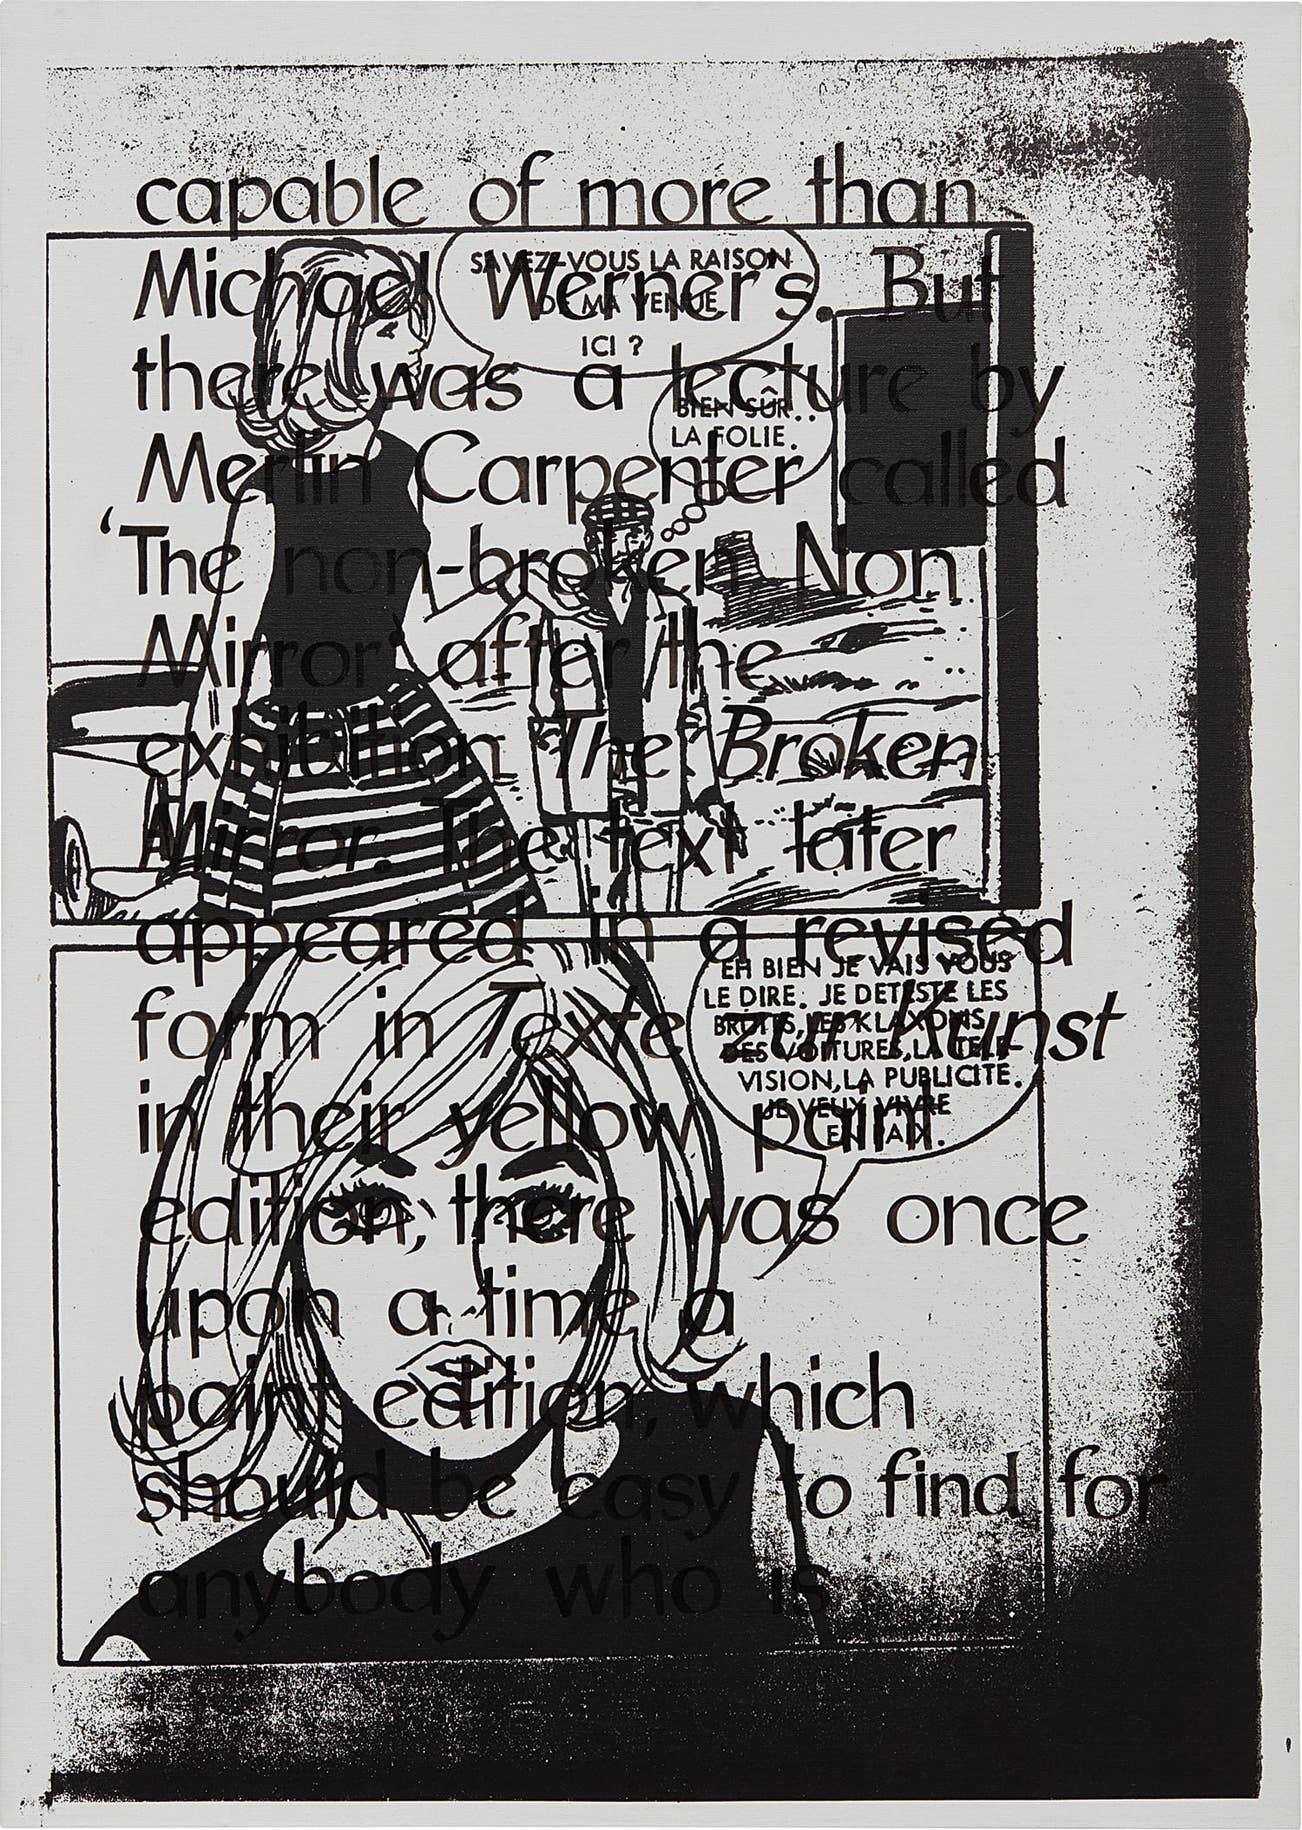 capable of more than
Michael Werner's. But
there was a lecture by
Merlin Carpenter called
‘The non-broken Non
Mirror’ after the
exhibition The Broken
Mirror. The text later
appeared in a revised
form in Texte zur Kunst
in their yellow paint
edition, there was once
upon a time a
paint edition, which
should be easy to find for
anybody who is
SAVEZ-VOUS LA RAISON
DE MA VENUE
ICI ?
BIEN SÛR..
LA FOLIE.
EH BIEN JE VAIS VOUS
LE DIRE. JE DETESTE LES
BRUITS, LES KLAXONS
DES VOITURES, LA TELE-
VISION, LA PUBLICITE.
JE VEUX VIVRE
EN PAIX.